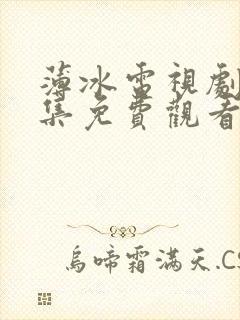 薄冰電視劇
集免費觀看
烏啼霜滿天.CS